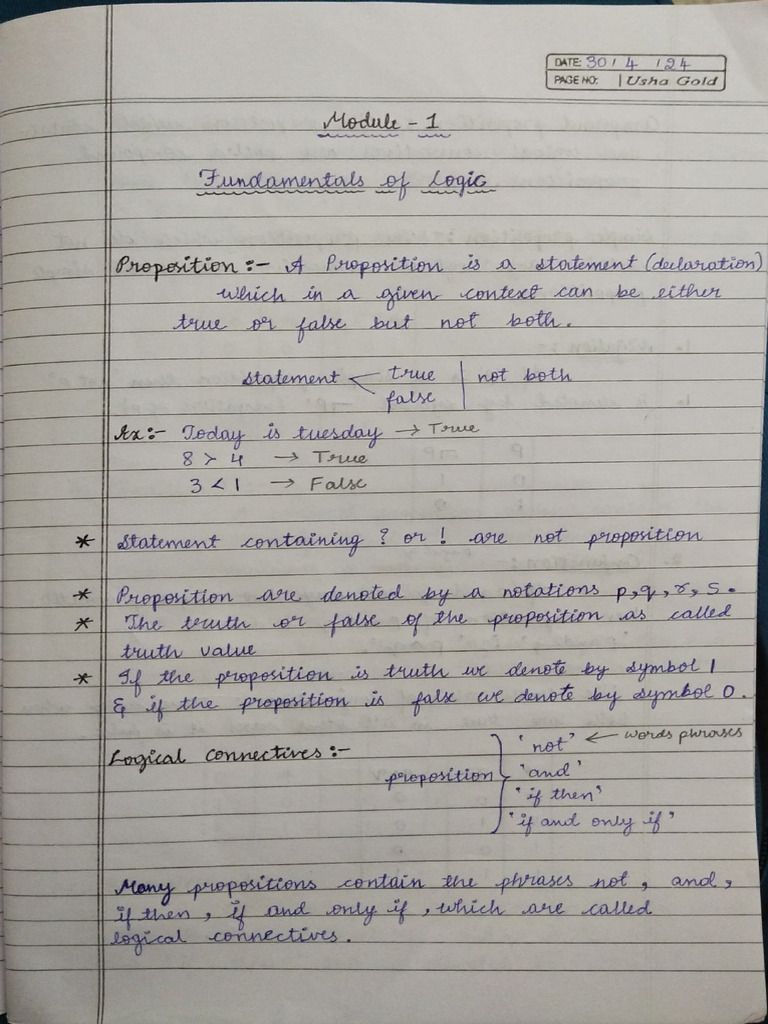 DATE: 30 / 4 / 24
PAGE NO: Usha Gold
Module - 1
Fundamentals of Logic
Proposition :- A Proposition is a statement (declaration)
which in a given context can be either
true or false but not both.
statement < true | not both
false
Ex:- Today is tuesday → True
8 > 4 → True
3 < 1 → False
* Statement containing ? or ! are not proposition
* Proposition are denoted by a notations p, q, r, s.
* The truth or false of the proposition as called
truth value
* If the proposition is truth we denote by symbol 1
& if the proposition is false we denote by symbol 0.
Logical connectives :-
'not' ← words phrases
proposition 'and'
'if then'
'if and only if'
Many propositions contain the phrases not, and,
if then, if and only if, which are called
logical connectives.